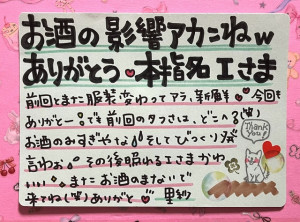 お酒の影響アカンねw
ありがとう♥本指名工さま
前回とまた服装変わってアラ、新鮮♥今回も
ありがとー!で前回のタフさは、どこへる(笑)
お酒のみすぎやな、そしてびっくり
言わぉ その後眠れる工さまかわ
いい また お酒のまないで
来てね(笑)ありがと♥ 里紗
Thank You!